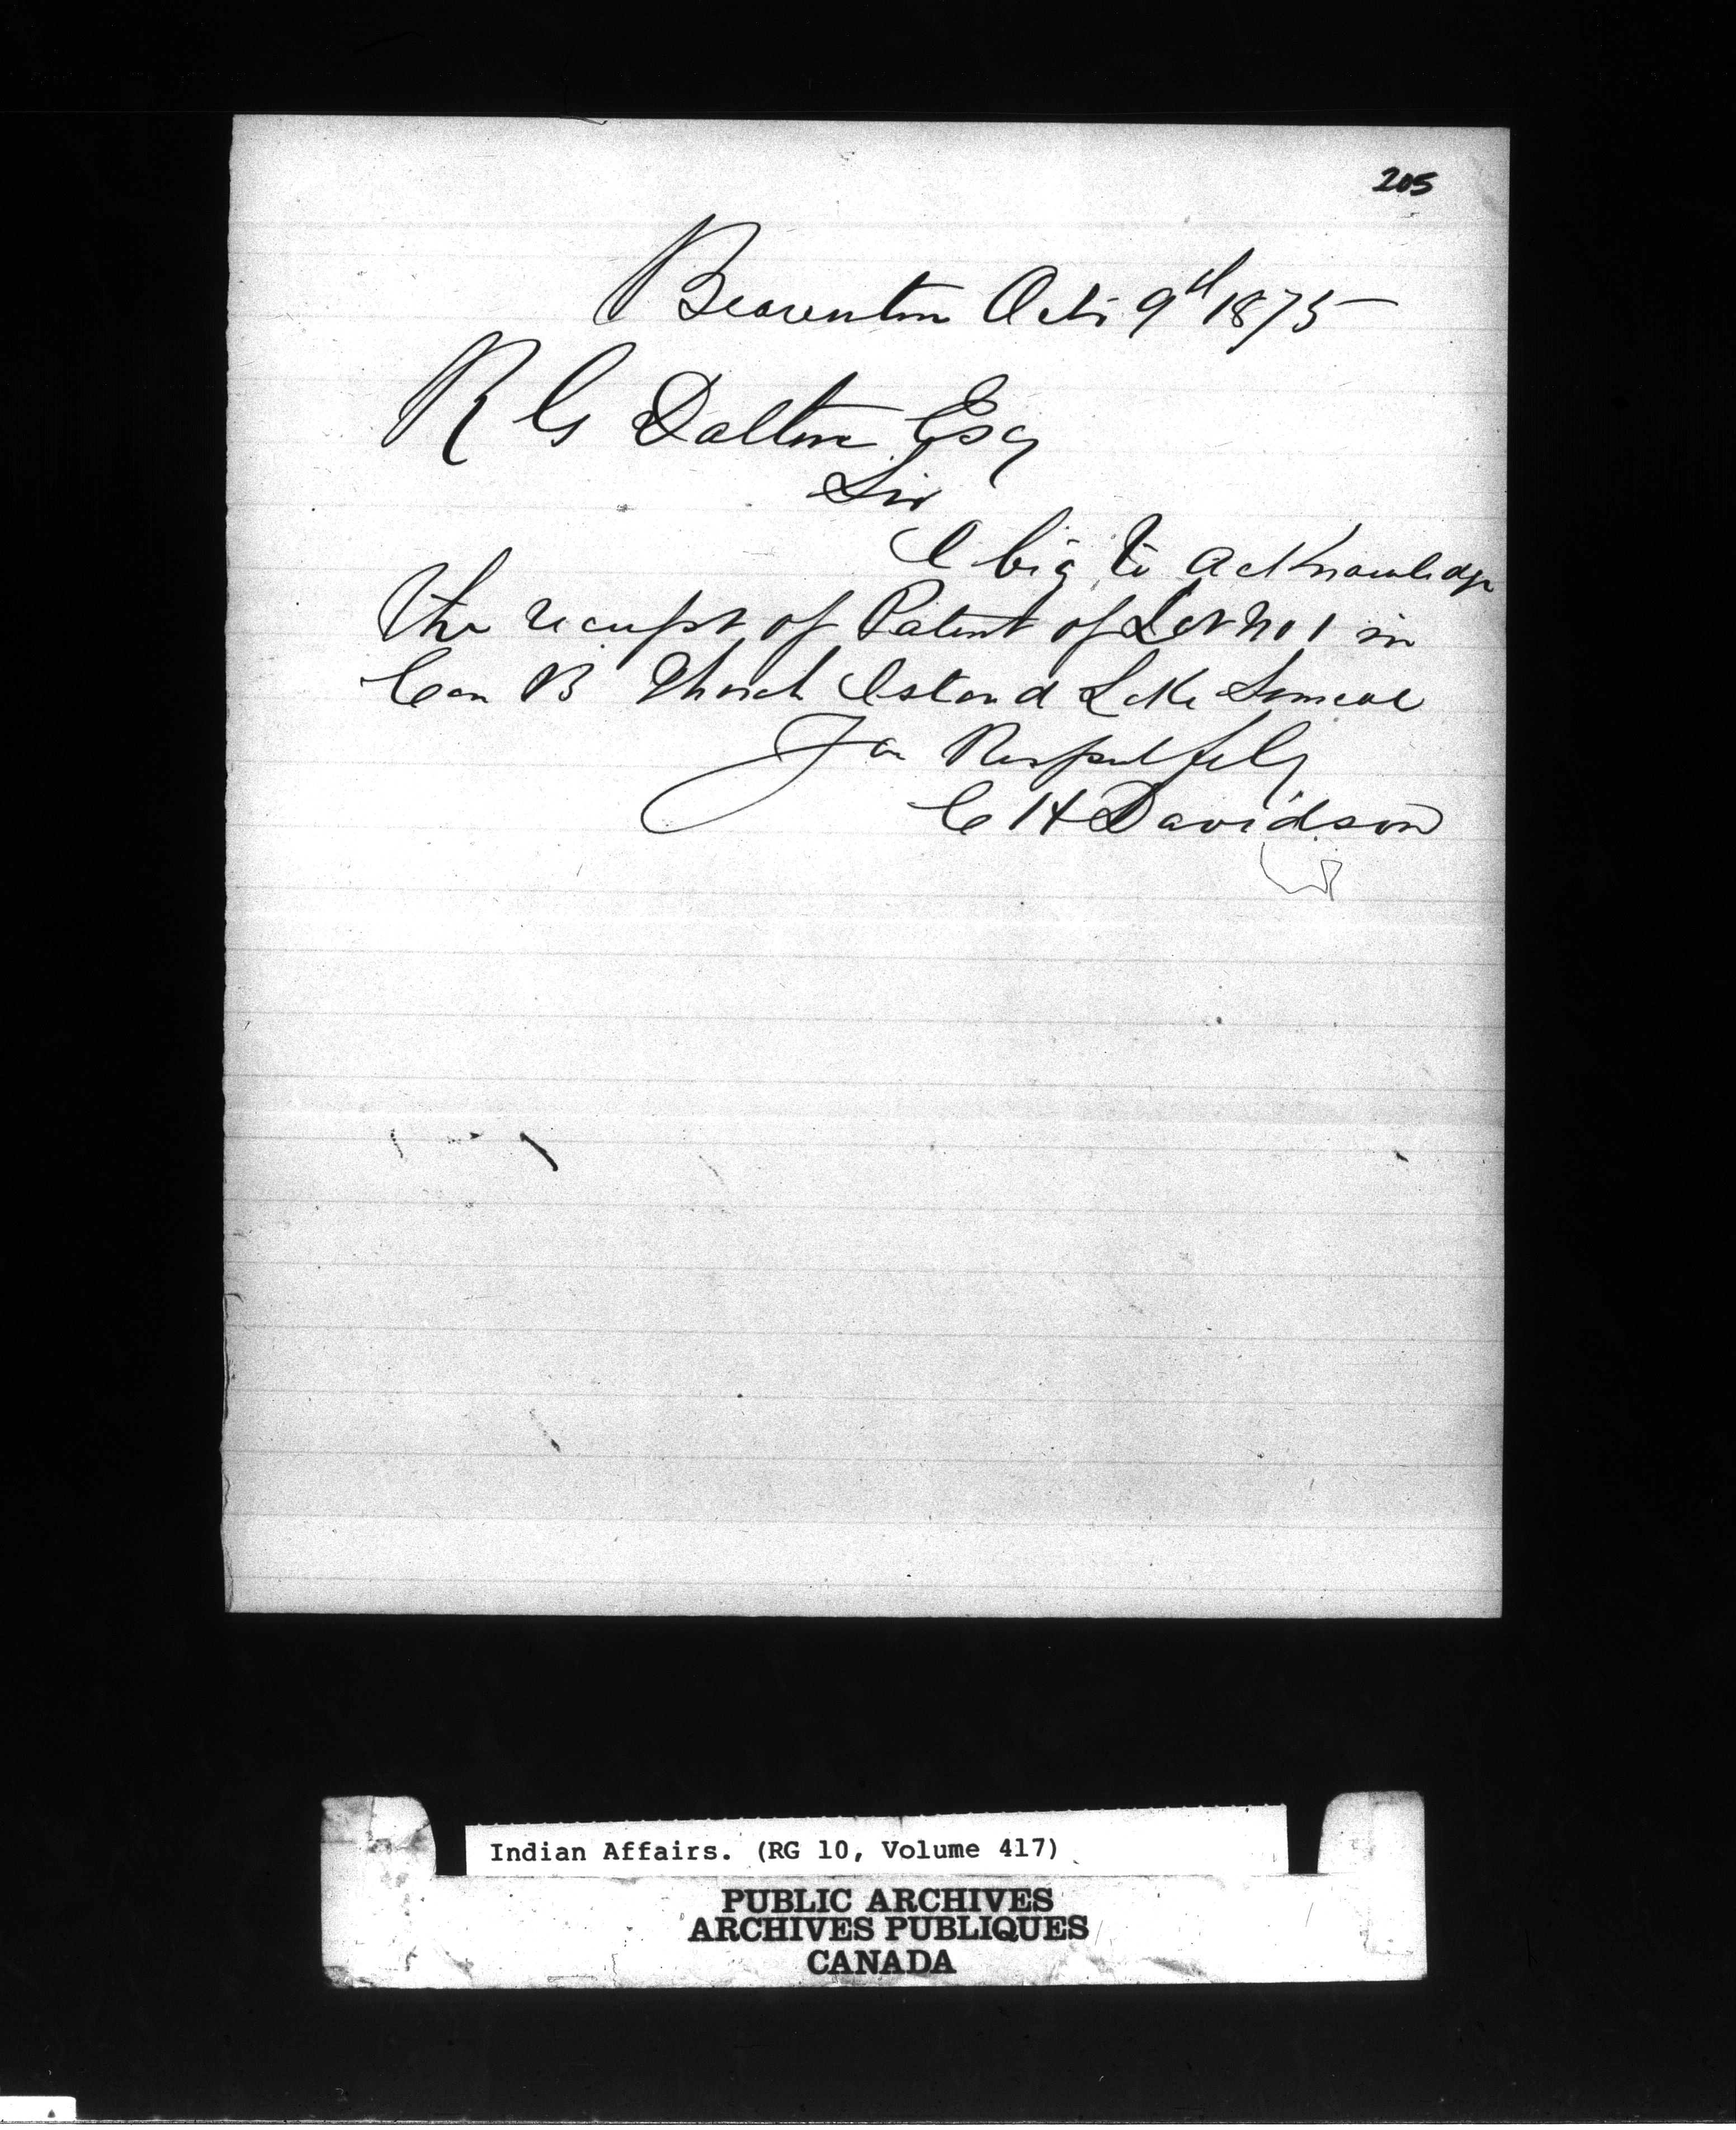 205
Beaverton Oct 9th 1875
R G Dalton Esq
Sir
I beg to acknowledge
the receipt of Patent of Lot No 1 in
Con B Thorah Island Lake Simcoe
Respectfully
C H Davidson
Indian Affairs. (RG 10, Volume 417)
PUBLIC ARCHIVES
ARCHIVES PUBLIQUES
CANADA